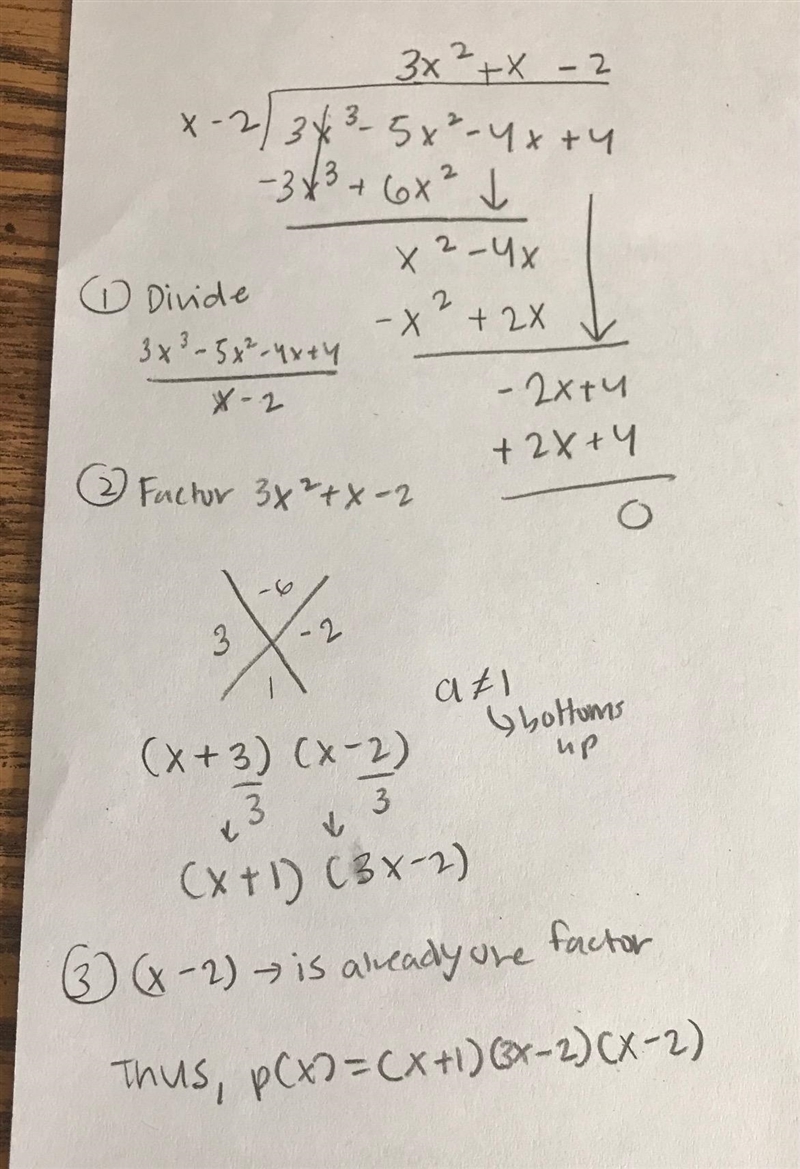 3x² + x - 2
x - 2 3x³ - 5x² - 4x + 4
-3x³ + 6x² ↓
x² - 4x
-x² + 2x
-2x+4
+2x+4
0
① Divide
3x³ - 5x² - 4x + 4
x - 2
② Factor 3x² + x - 2
-6
3 -2
1
a ≠ 1
↳ bottoms
up
(x + 3) (x - 2)
3 3
↓ ↓
(x + 1) (3x - 2)
③ (x - 2) → is already one factor
Thus, p(x) = (x+1)(3x-2)(x-2)